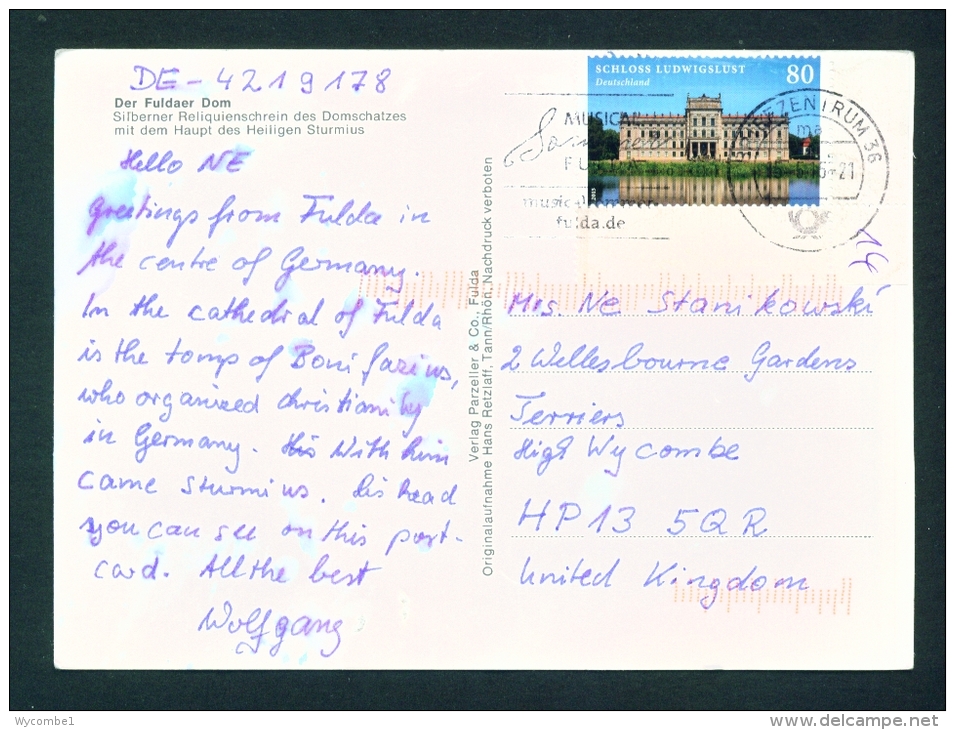 DE-4219178
Der Fuldaer Dom
Silberner Reliquienschrein des Domschatzes
mit dem Haupt des Heiligen Sturmius
Hello NE
Greetings from Fulda in
the centre of Germany.
In the cathedral of Fulda
is the tomp of Bonifazius,
who organized christianity
in Germany. His With him
came Sturmius. His head
you can see on this post-
card. All the best
Wolfgang
Verlag Parzeller & Co., Fulda
Originalaufnahme Hans Retzlaff, Tann/Rhön. Nachdruck verboten
SCHLOSS LUDWIGSLUST 80
Deutschland
2015
MUSICAL
Sommer
FULDA
musicalsommer-
fulda.de
BRIEFZENTRUM 36
-21
14
Mrs. Ne Stanikowski
2 Wellesbourne Gardens
Terriers
High Wycombe
HP13 5QR
United Kingdom
Wycombe1
www.delcampe.net